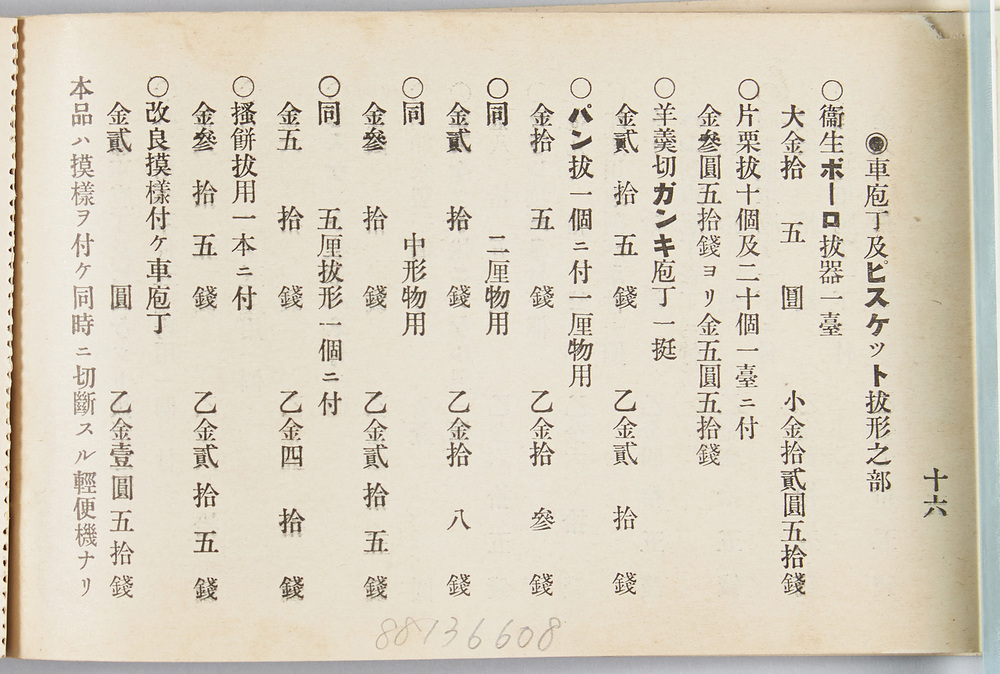 十六
◉車庖丁及ビスケット拔形之部
○衞生ボーロ拔器一臺
大金拾五圓 小金拾貳圓五拾錢
○片栗拔十個及二十個一臺ニ付
金參圓五拾錢ヨリ金五圓五拾錢
○羊羮切ガンキ庖丁一挺
金貳拾五錢 乙金貳拾錢
○パン拔一個ニ付一厘物用
金拾五錢 乙金拾參錢
○同 二厘物用
金貳拾錢 乙金拾八錢
○同 中形物用
金參拾錢 乙金貳拾五錢
○同 五厘拔形一個ニ付
金五拾錢 乙金四拾錢
○搔餅拔用一本ニ付
金參拾五錢 乙金貳拾五錢
○改良摸樣付ケ車庖丁
金貳圓 乙金壹圓五拾錢
本品ハ摸樣ヲ付ケ同時ニ切斷スル輕便機ナリ
88136608